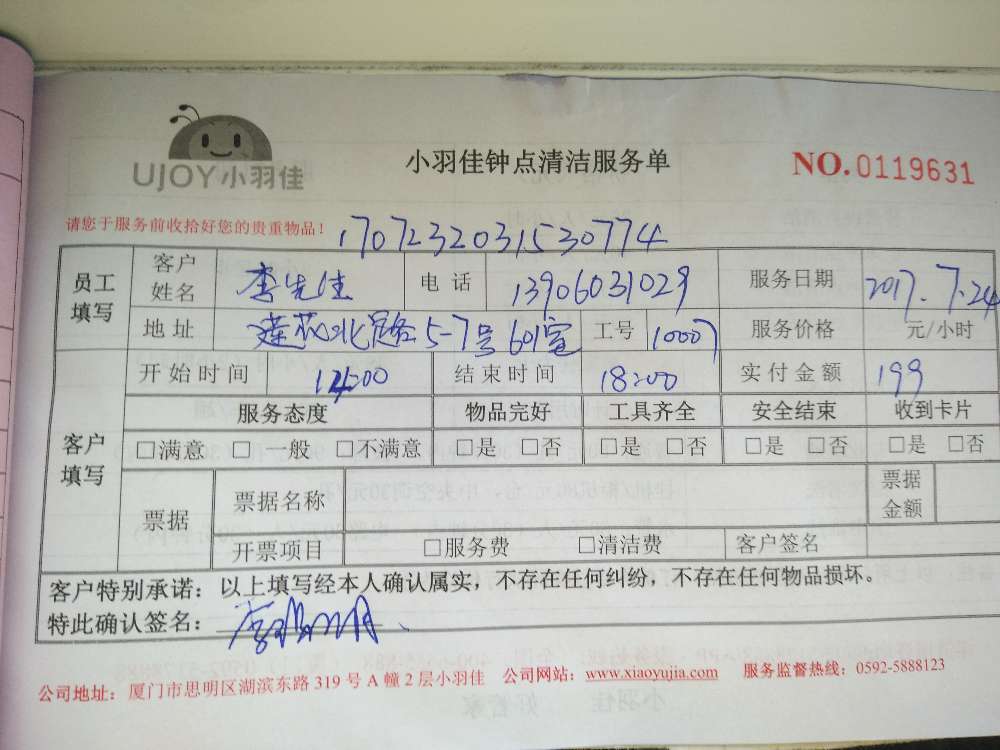 UJOY小羽佳
小羽佳钟点清洁服务单
NO.0119631
请您于服务前收拾好您的贵重物品！
1707232031530774
员工填写 客户姓名 李先生 电话 13906031029 服务日期 2017.7.24
地址 莲花北路5-7号601室 工号 10007 服务价格 元/小时
客户填写 开始时间 14:00 结束时间 18:00 实付金额 199
服务态度 物品完好 工具齐全 安全结束 收到卡片
□满意 □一般 □不满意 □是 □否 □是 □否 □是 □否 □是 □否
票据 票据名称 票据金额
开票项目 □服务费 □清洁费 客户签名
客户特别承诺：以上填写经本人确认属实，不存在任何纠纷，不存在任何物品损坏。
特此确认签名：
公司地址：厦门市思明区湖滨东路319号A幢2层小羽佳 公司网站：www.xiaoyujia.com 服务监督热线：0592-5888123